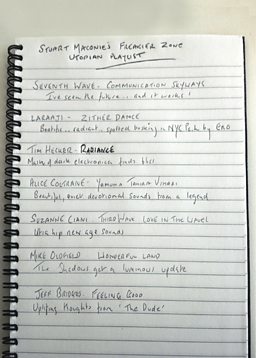 STUART MACONIE'S FREAKIER ZONE
UTOPIAN PLAYLIST
SEVENTH WAVE - COMMUNICATION SKYWAYS
I've seen the future.. and it works!
LARAAJI - ZITHER DANCE
Beatific.. radiant.. spotted busking in NYC Park by ENO
TIM HECKER - RADIANCE
Master of dark electronica finds bliss
ALICE COLTRANE - Yamuna Tira Vihari
Beautiful, quiet, devotional sounds from a legend
SUZANNE CIANI THIRD WAVE LOVE IN THE WAVES
hip new age sounds
MIKE OLDFIELD WONDERFUL LAND
The Shadows get a luminous update
JEFF BRIDGES - FEELING GOOD
Uplifting thoughts from 'The Dude'